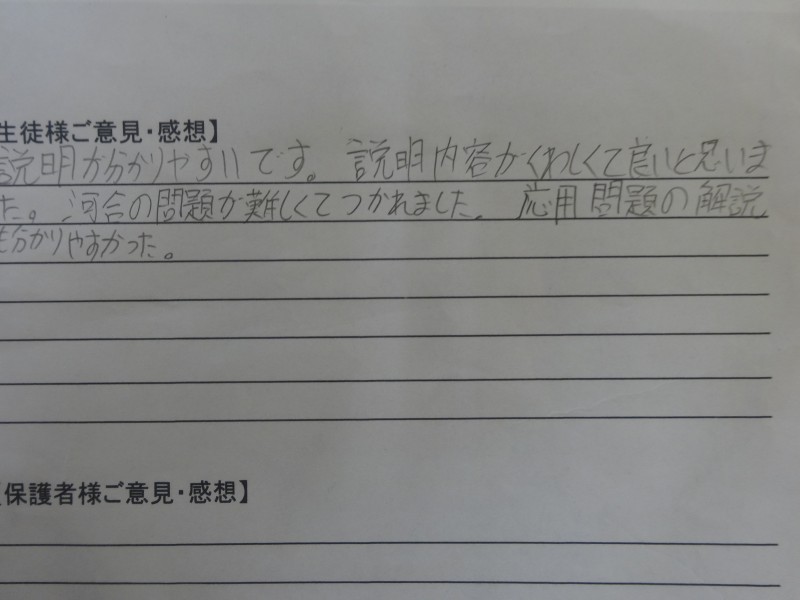 生徒様ご意見・感想】
説明が分かりやすいです。説明内容がくわしくて良いと思いま
した。河合の問題が難しくてつかれました。応用問題の解説
も分かりやすかった。
【保護者様ご意見・感想】